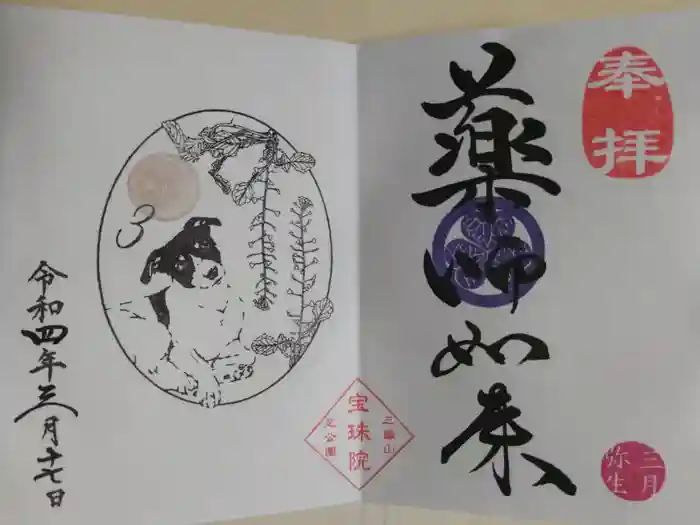 奉拝
薬師如来
三月
弥生
宝珠院
三縁山
芝公園
3
令和四年三月十七日